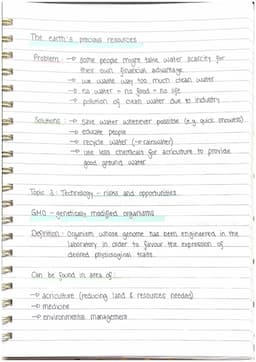 The earth's precious resources
Problem: → some people might take water scarcity for
their own financial advantage
→ we waste way too much clean water
→ no water = no food = no life
→ pollution of clean water due to industry
Solutions: → save water whenever possible (e.g. quick showers)
→ educate people
→ recycle water (→ rainwater)
→ use less chemicals for agriculture to provide
good ground water
Topic 3: Technology - risks and opportunities
GMO - genetically modified organisms
Definition: Organism whose genome has been engineered in the
laboratory in order to favour the expression of
desired physiological traits.
Can be found in area of:
→ agriculture (reducing land & resources needed)
→ medicine
→ environmental management